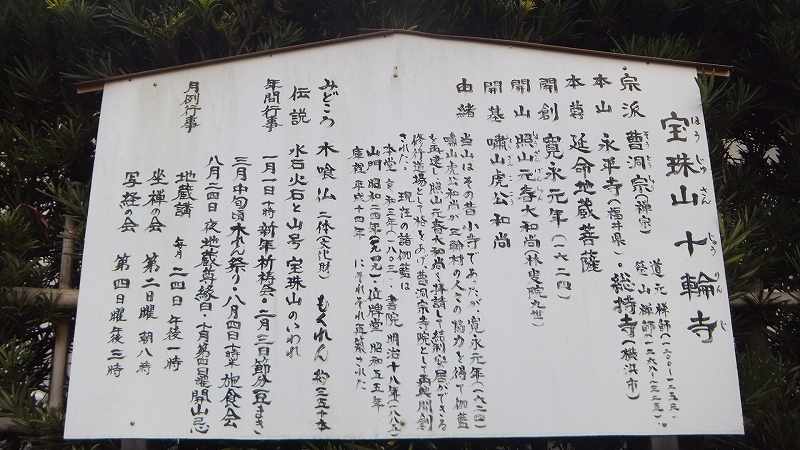 宝珠山十輪寺
ほうじゅさん じゅうりんじ
宗派 曹洞宗(禅宗)
そうとうしゅう
道元禅師(一二〇〇〜一二五三)
瑩山禅師(一二六八〜一三二五)
本山 永平寺(福井県)・総持寺(横浜市)
本尊 延命地蔵菩薩
開創 寛永元年(一六二四)
開山 照山元春大和尚(林叟院九世)
開基 嘯山虎公和尚
由緒 当山はその昔小寺であったが、寛永元年(一六二四)
嘯山虎公和尚が三輪村の人々の協力を得て伽藍
を再建し照山元春大和尚を拝請して結制安居ができる
修行道場として格をあげ曹洞宗寺院として再興開創
された。 現在の諸伽藍は
本堂 享和三年(一八〇三)・書院 明治十八年(一八八五)
山門 昭和二四年(一九四九)・位牌堂 昭和五五年
庫裡 平成十四年 にそれぞれ再築された
みどころ 木喰仏 二体(文化財) もくれん 約二五十本
伝説 水石火石と山号 宝珠山のいわれ
年間行事 一月一日十時 新年祈祷会・二月三日節分(豆まき)
三月中旬頃 木れん祭り・八月四日十時半 施食会
八月二四日夜 地蔵尊縁日・十月第四日曜 開山忌
月例行事 地蔵講 毎月二四日 午後一時
坐禅の会 第二日曜 朝八時
写経の会 第四日曜 午後三時